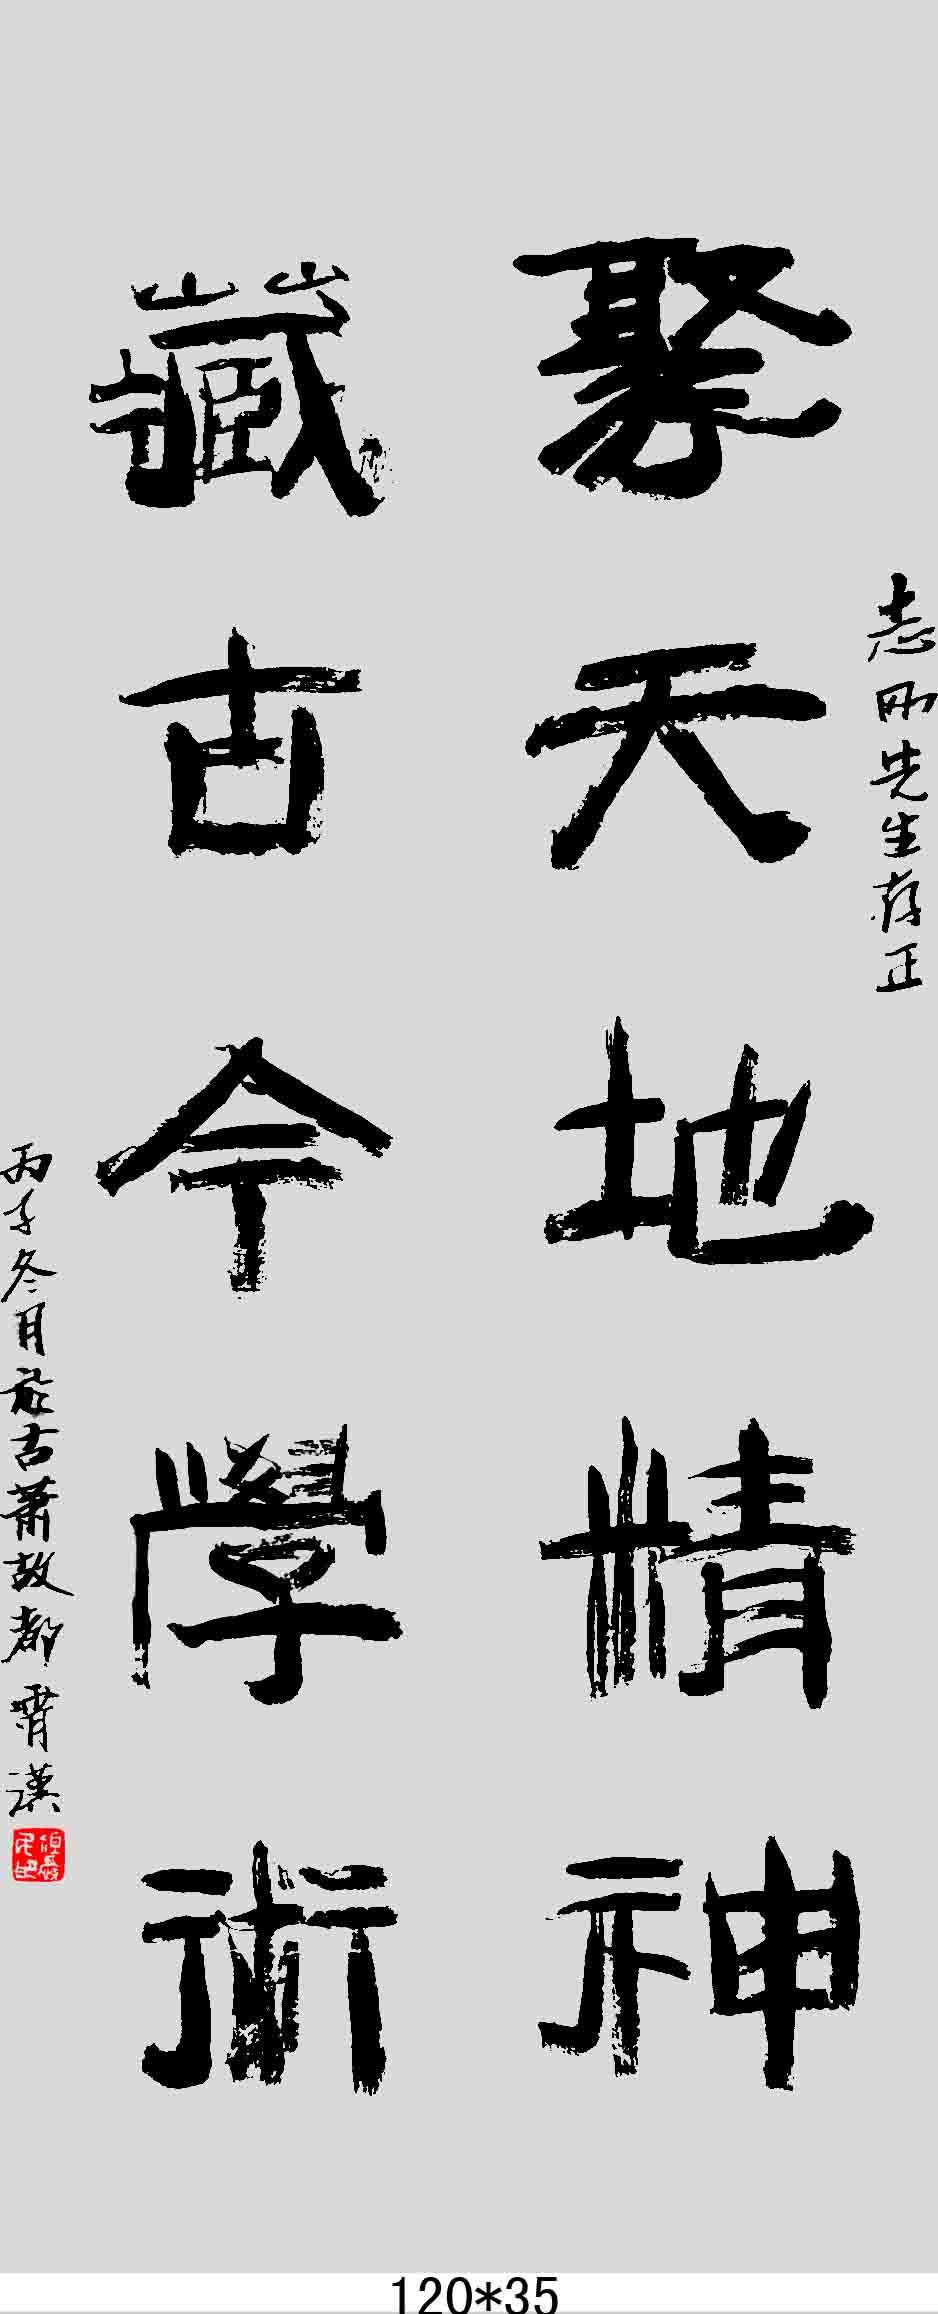 志刚先生存正
聚天地精神
藏古今學術
丙子冬月於古蕭故都霄漢
120*35